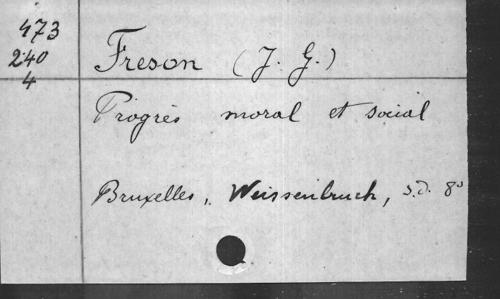 473
240
4
Freson (J. G.)
Progrès moral et social
Bruxelles, Weissenbruch, s.d. 8º